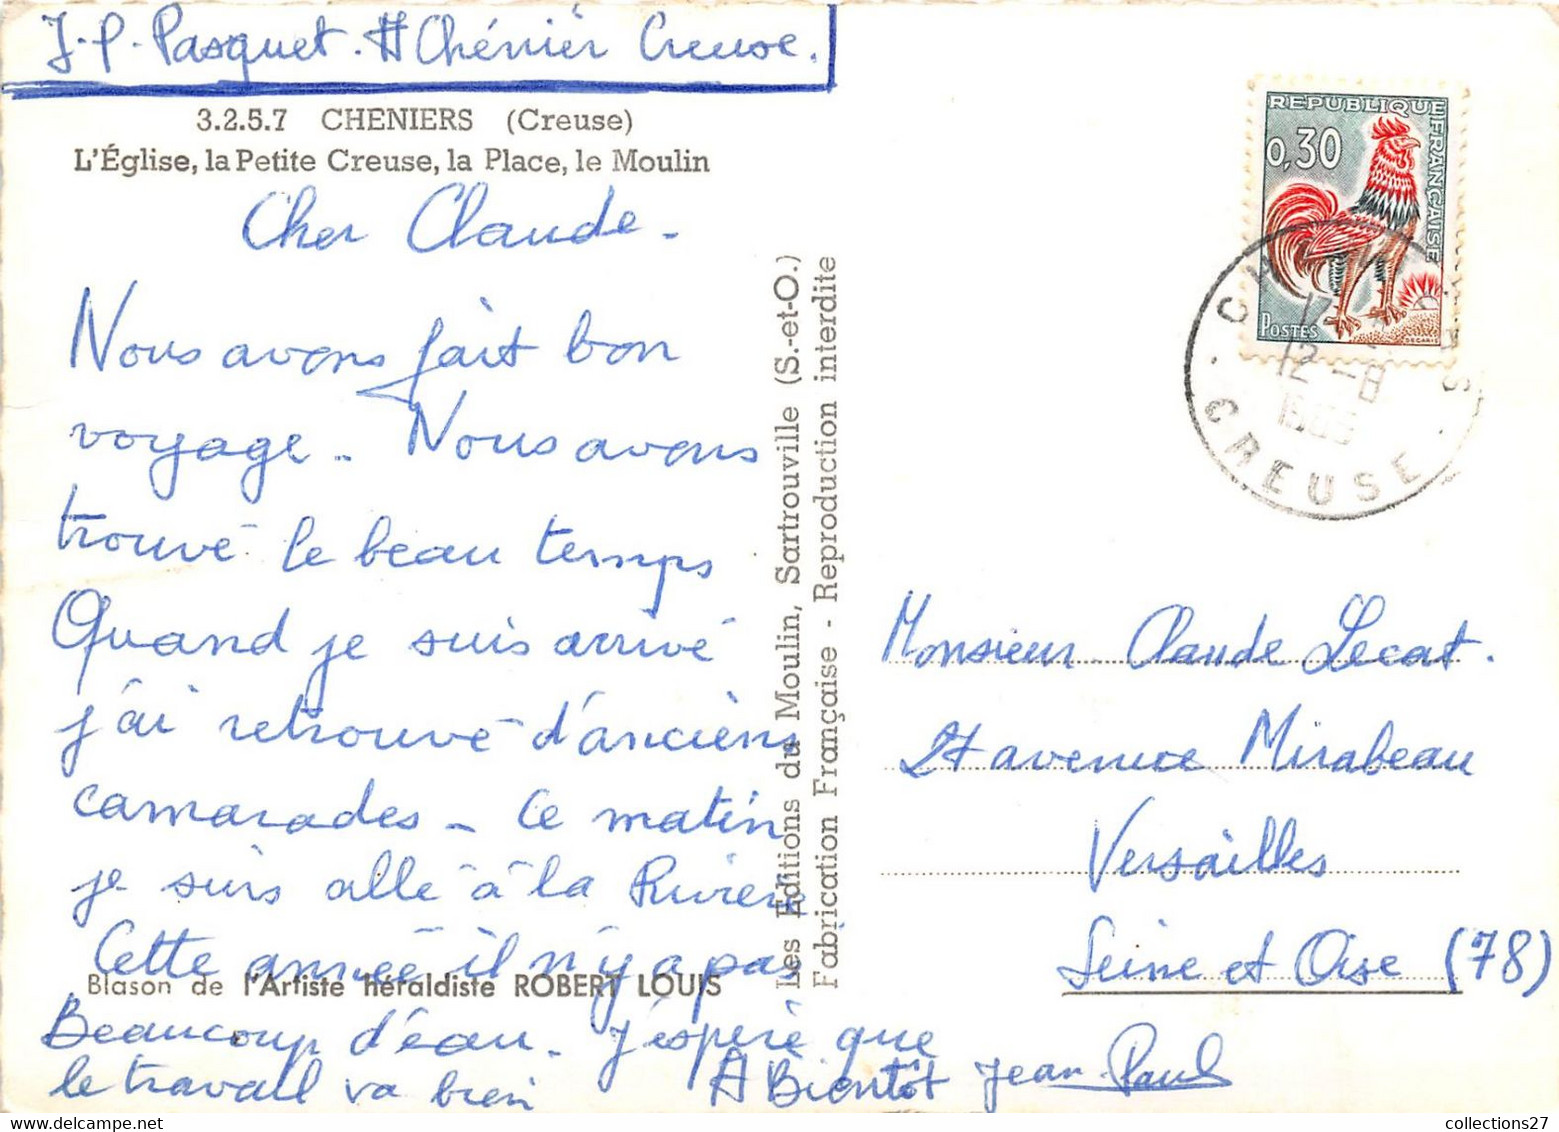 J.P. Pasquet. # Chénier Creuse.
3.2.5.7 CHENIERS (Creuse)
L'Église, la Petite Creuse, la Place, le Moulin
Cher Claude -
Nous avons fait bon
voyage - Nous avons
trouvé le beau temps
Quand je suis arrivé
j'ai retrouvé d'anciens
camarades - Ce matin
je suis allé à la Rivière
Cette année il n'y a pas
Blason de l'Artiste héraldiste ROBERT LOUIS
Beaucoup d'eau. J'espère que
le travail va bien
A Bientôt Jean-Paul
Les Editions du Moulin, Sartrouville (S.-et-O.)
Fabrication Française - Reproduction interdite
REPUBLIQUE FRANÇAISE
0,30
POSTES
DECARIS
12 -8
CREUSE
Monsieur Claude Lecat.
avenue Mirabeau
Versailles
Seine et Oise (78)
collections27